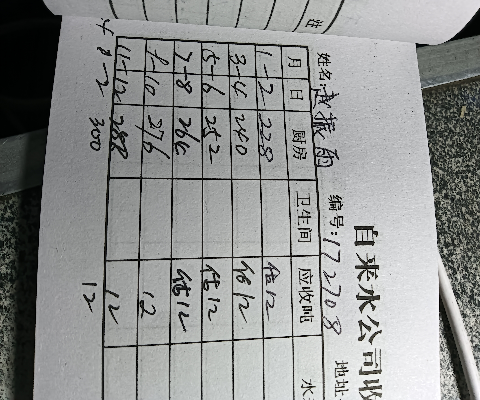 自来水公司收
姓名: 振雨 编号: 172708 地址
月 日 厨房 卫生间 应收吨 水
1-2 228 估12
3-4 240 估12
5-6 252 估12
7-8 264 估12
9-10 276 12
11-12 288 12
300 12